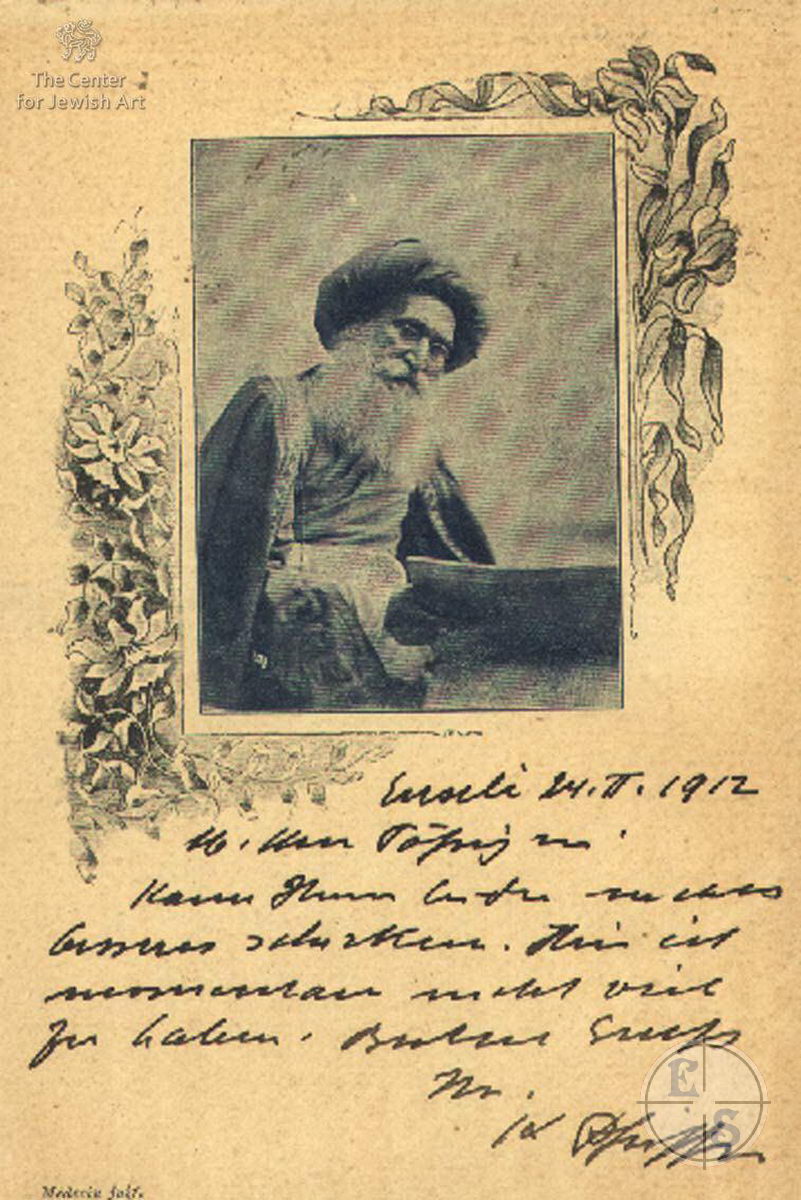 The Center
for Jewish Art
Enseli 24.II.1912
Kann Ihnen leider nichts
besseres schicken. Hier ist
momentan nicht viel
zu haben. Besten Gruss
Ihr
K Pfeiffer
E
S
Mederin fait.